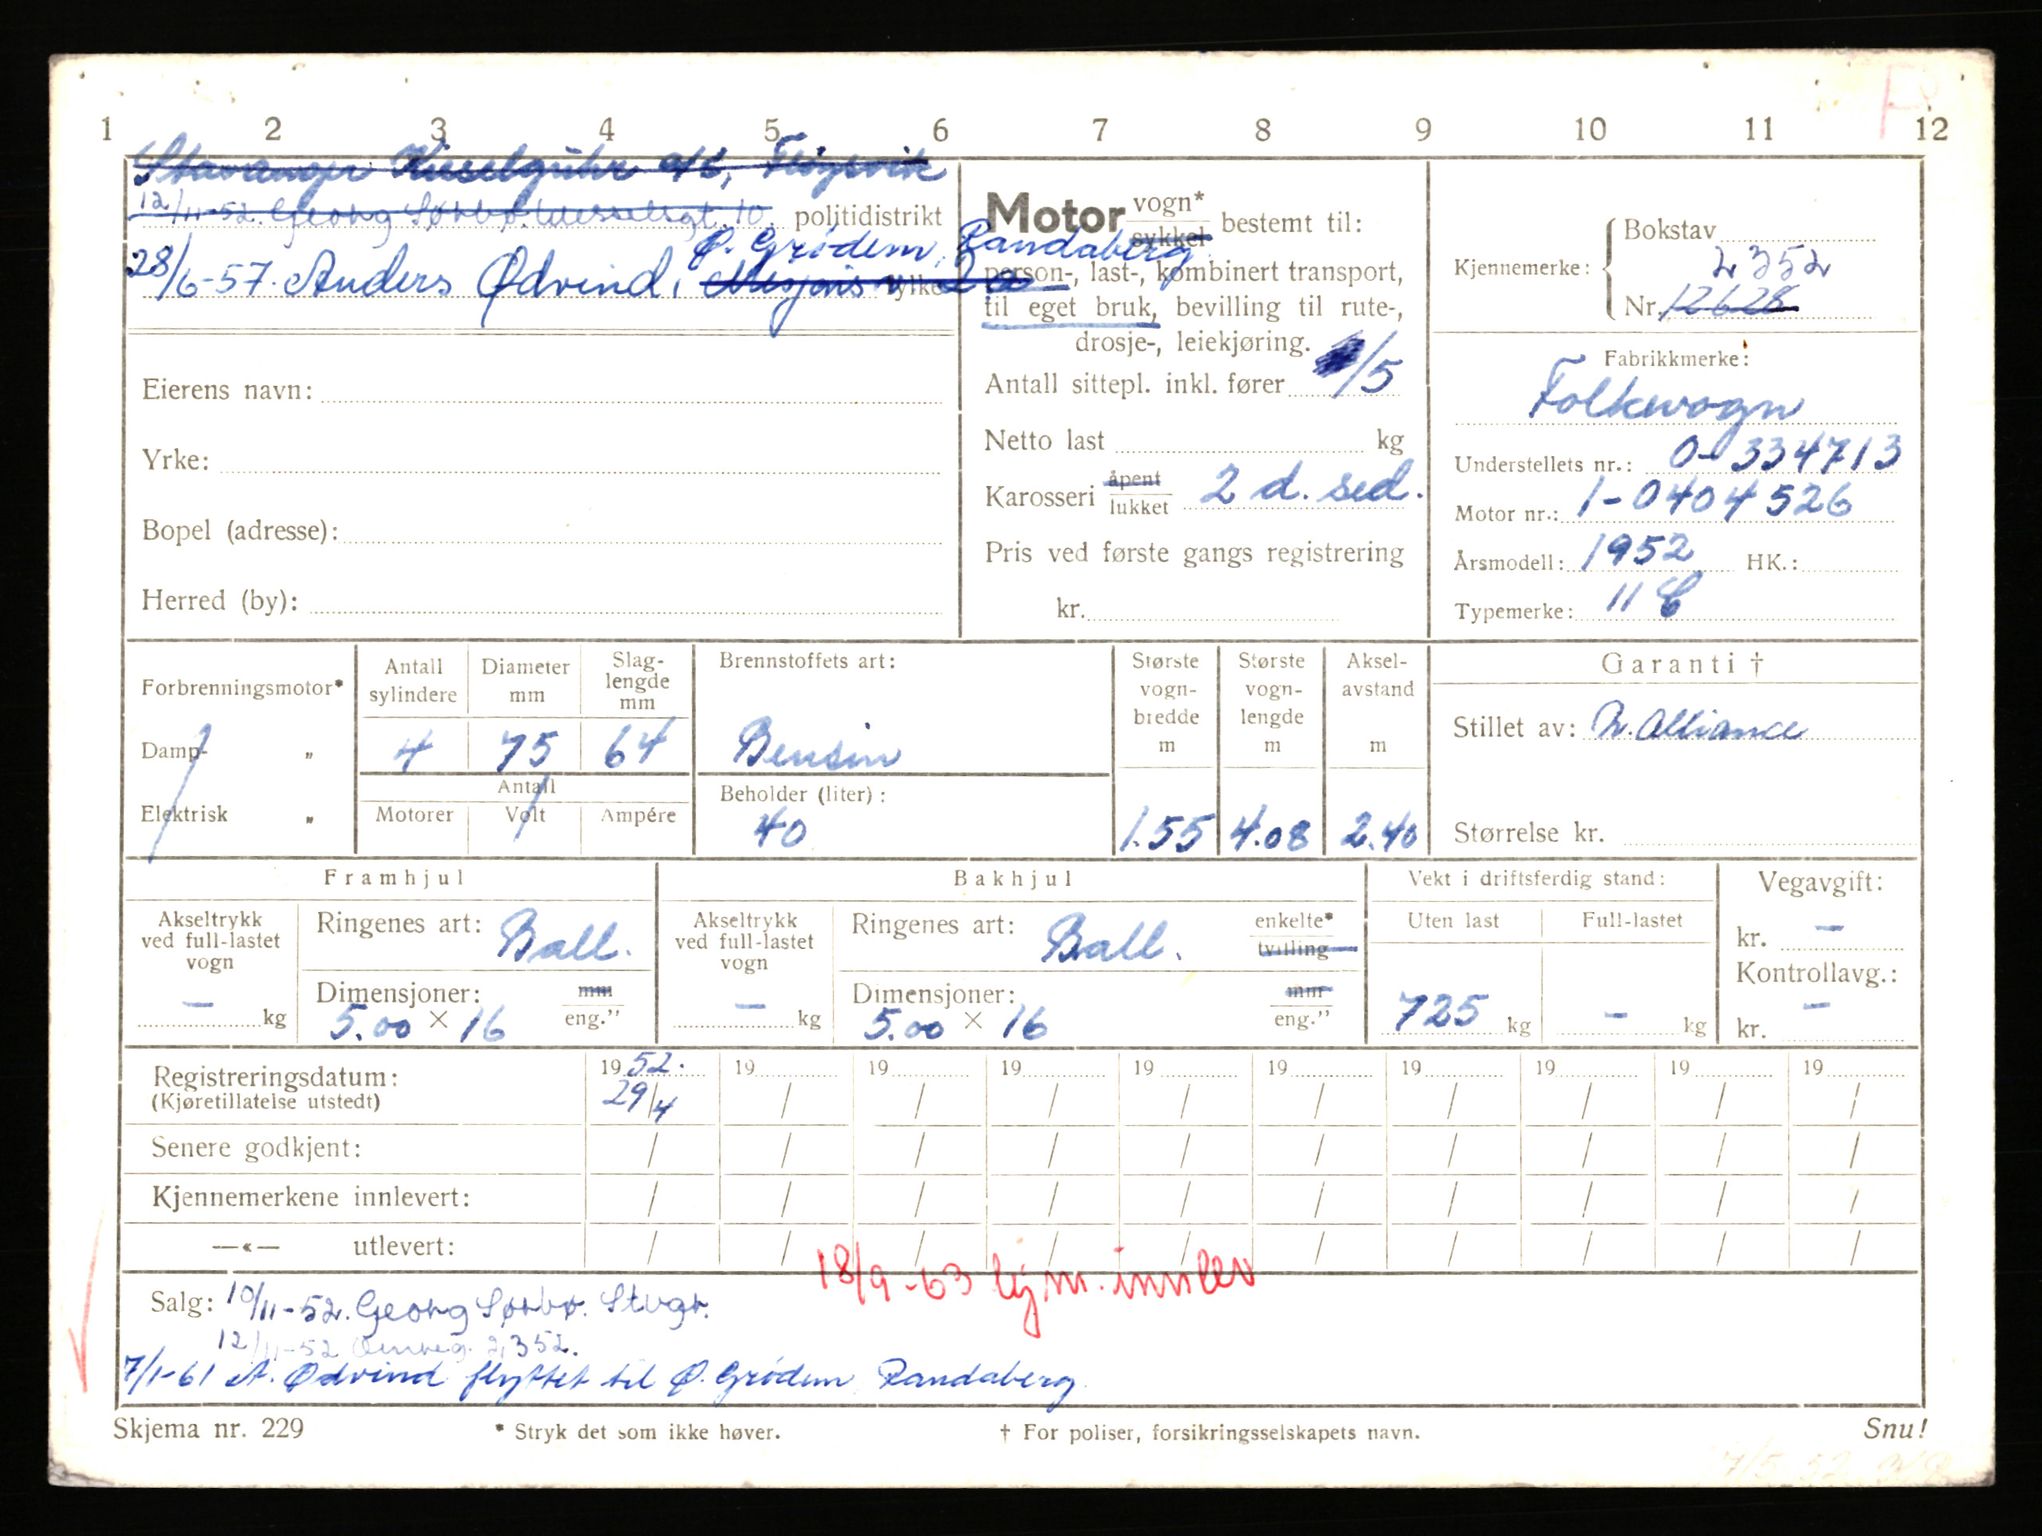 1 2 3 4 5 6 7 8 9 10 11 12
Stavanger Kieselguhr a/s,
12/11-52. Georg Sørbø. 10. politidistrikt
28/6-57. Anders Ødvind, Ø. Grødem, Randaberg fylke
Eierens navn:
Yrke:
Bopel (adresse):
Herred (by):
Motor vogn* sykkel bestemt til:
person-, last-, kombinert transport,
til eget bruk, bevilling til rute-,
drosje-, leiekjøring.
Antall sittepl. inkl. fører /5
Netto last kg
Karosseri åpent lukket 2 d. sed.
Pris ved første gangs registrering
kr.
Kjennemerke: Bokstav
2352
Nr. 12628
Fabrikkmerke:
Folkevogn
Understellets nr.: 0-334713
Motor nr.: 1-0404526
Årsmodell: 1952 HK.:
Typemerke: 11 C
Forbrenningsmotor*
Damp- „
Elektrisk „
Antall sylindere Diameter mm Slag-lengde mm
4 75 64
Antall
Motorer Volt Ampére
Brennstoffets art:
Bensin
Beholder (liter):
40
Største vogn-bredde m
1.55
Største vogn-lengde m
4.08
Aksel-avstand m
2.40
Garanti †
Stillet av: N. Alliance
Størrelse kr.
Framhjul
Akseltrykk ved full-lastet vogn
– kg
Ringenes art: Ball.
Dimensjoner: mm
5.00 × 16 eng.”
Bakhjul
Akseltrykk ved full-lastet vogn
– kg
Ringenes art: Ball. enkelte* tvilling
Dimensjoner: mm
5.00 × 16 eng.”
Vekt i driftsferdig stand:
Uten last Full-lastet
725 kg – kg
Vegavgift:
kr. –
Kontrollavg.:
kr. –
Registreringsdatum: 1952. 19 19 19 19 19 19 19 19 19
(Kjøretillatelse utstedt) 29/4 / / / / / / / / /
Senere godkjent: / / / / / / / / / /
Kjennemerkene innlevert: / / / / / / / / / /
—«— utlevert: / / / / / / / / / /
18/9-63 kj.m. innlev
Salg: 10/11-52. Georg Sørbø. Stvgr.
12/11-52 Omreg. 2352.
7/1-61 A. Ødvind flyttet til Ø. Grødem Randaberg
Skjema nr. 229 * Stryk det som ikke høver. † For poliser, forsikringsselskapets navn. Snu!